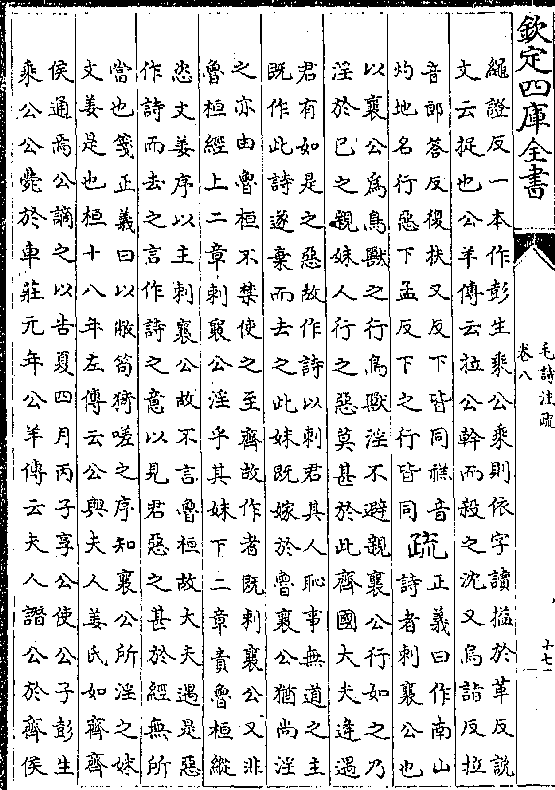 欽定四庫全書
毛詩注疏
卷八
十七
繩證反一本作彭生乘公乘則依字讀搤於革反説
文云捉也公羊傳云拉公幹而殺之沈又烏詣反拉
音郎荅反復扶又反下皆同禚音
灼地名行惡下孟反下之行皆同
疏
正義曰作南山
詩者刺襄公也
以襄公為鳥獸之行鳥獸淫不避親襄公行如之乃
淫於已之親妹人行之惡莫甚於此齊國大夫逢遇
君有如是之惡故作詩以刺君其人恥事無道之主
既作此詩遂棄而去之此妹既嫁於魯襄公猶尚淫
之亦由魯桓不禁使之至齊故作者既刺襄公又非
魯桓經上二章刺襄公淫乎其妹下二章責魯桓縱
恣文姜序以主刺襄公故不言魯桓故大夫遇是惡
作詩而去之言作詩之意以見君惡之甚於經無所
當也箋正義曰以敝笱猗嗟之序知襄公所淫之妹
文姜是也桓十八年左傳云公與夫人姜氏如齊齊
侯通焉公謫之以告夏四月丙子享公使公子彭生
乘公公薨於車莊元年公羊傳云夫人譖公於齊侯